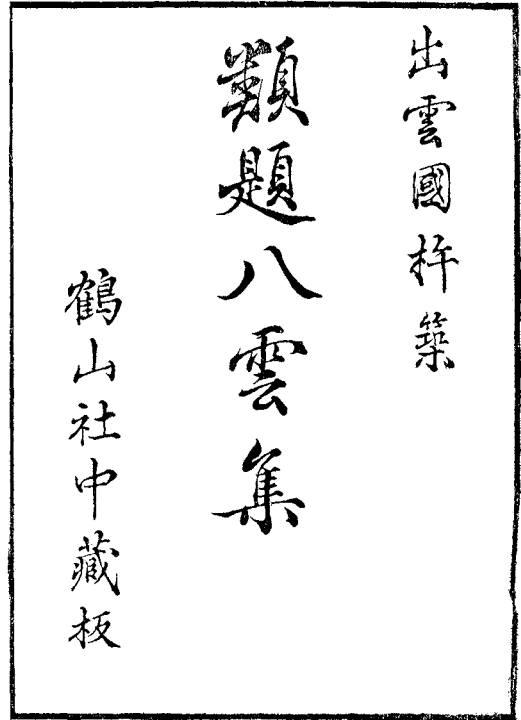 出雲國杵築
類題八雲集
鶴山社中藏板